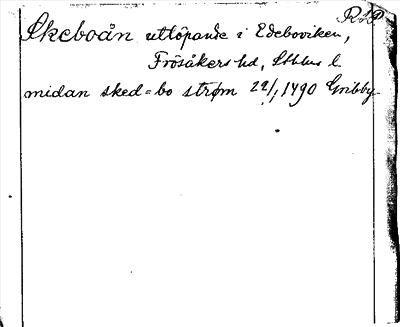 RAP
Skeboån utlöpande i Edeboviken,
Frösåkers hd, Sthlms l.
midan sked=bo strøm 22/1 1490 Gribby